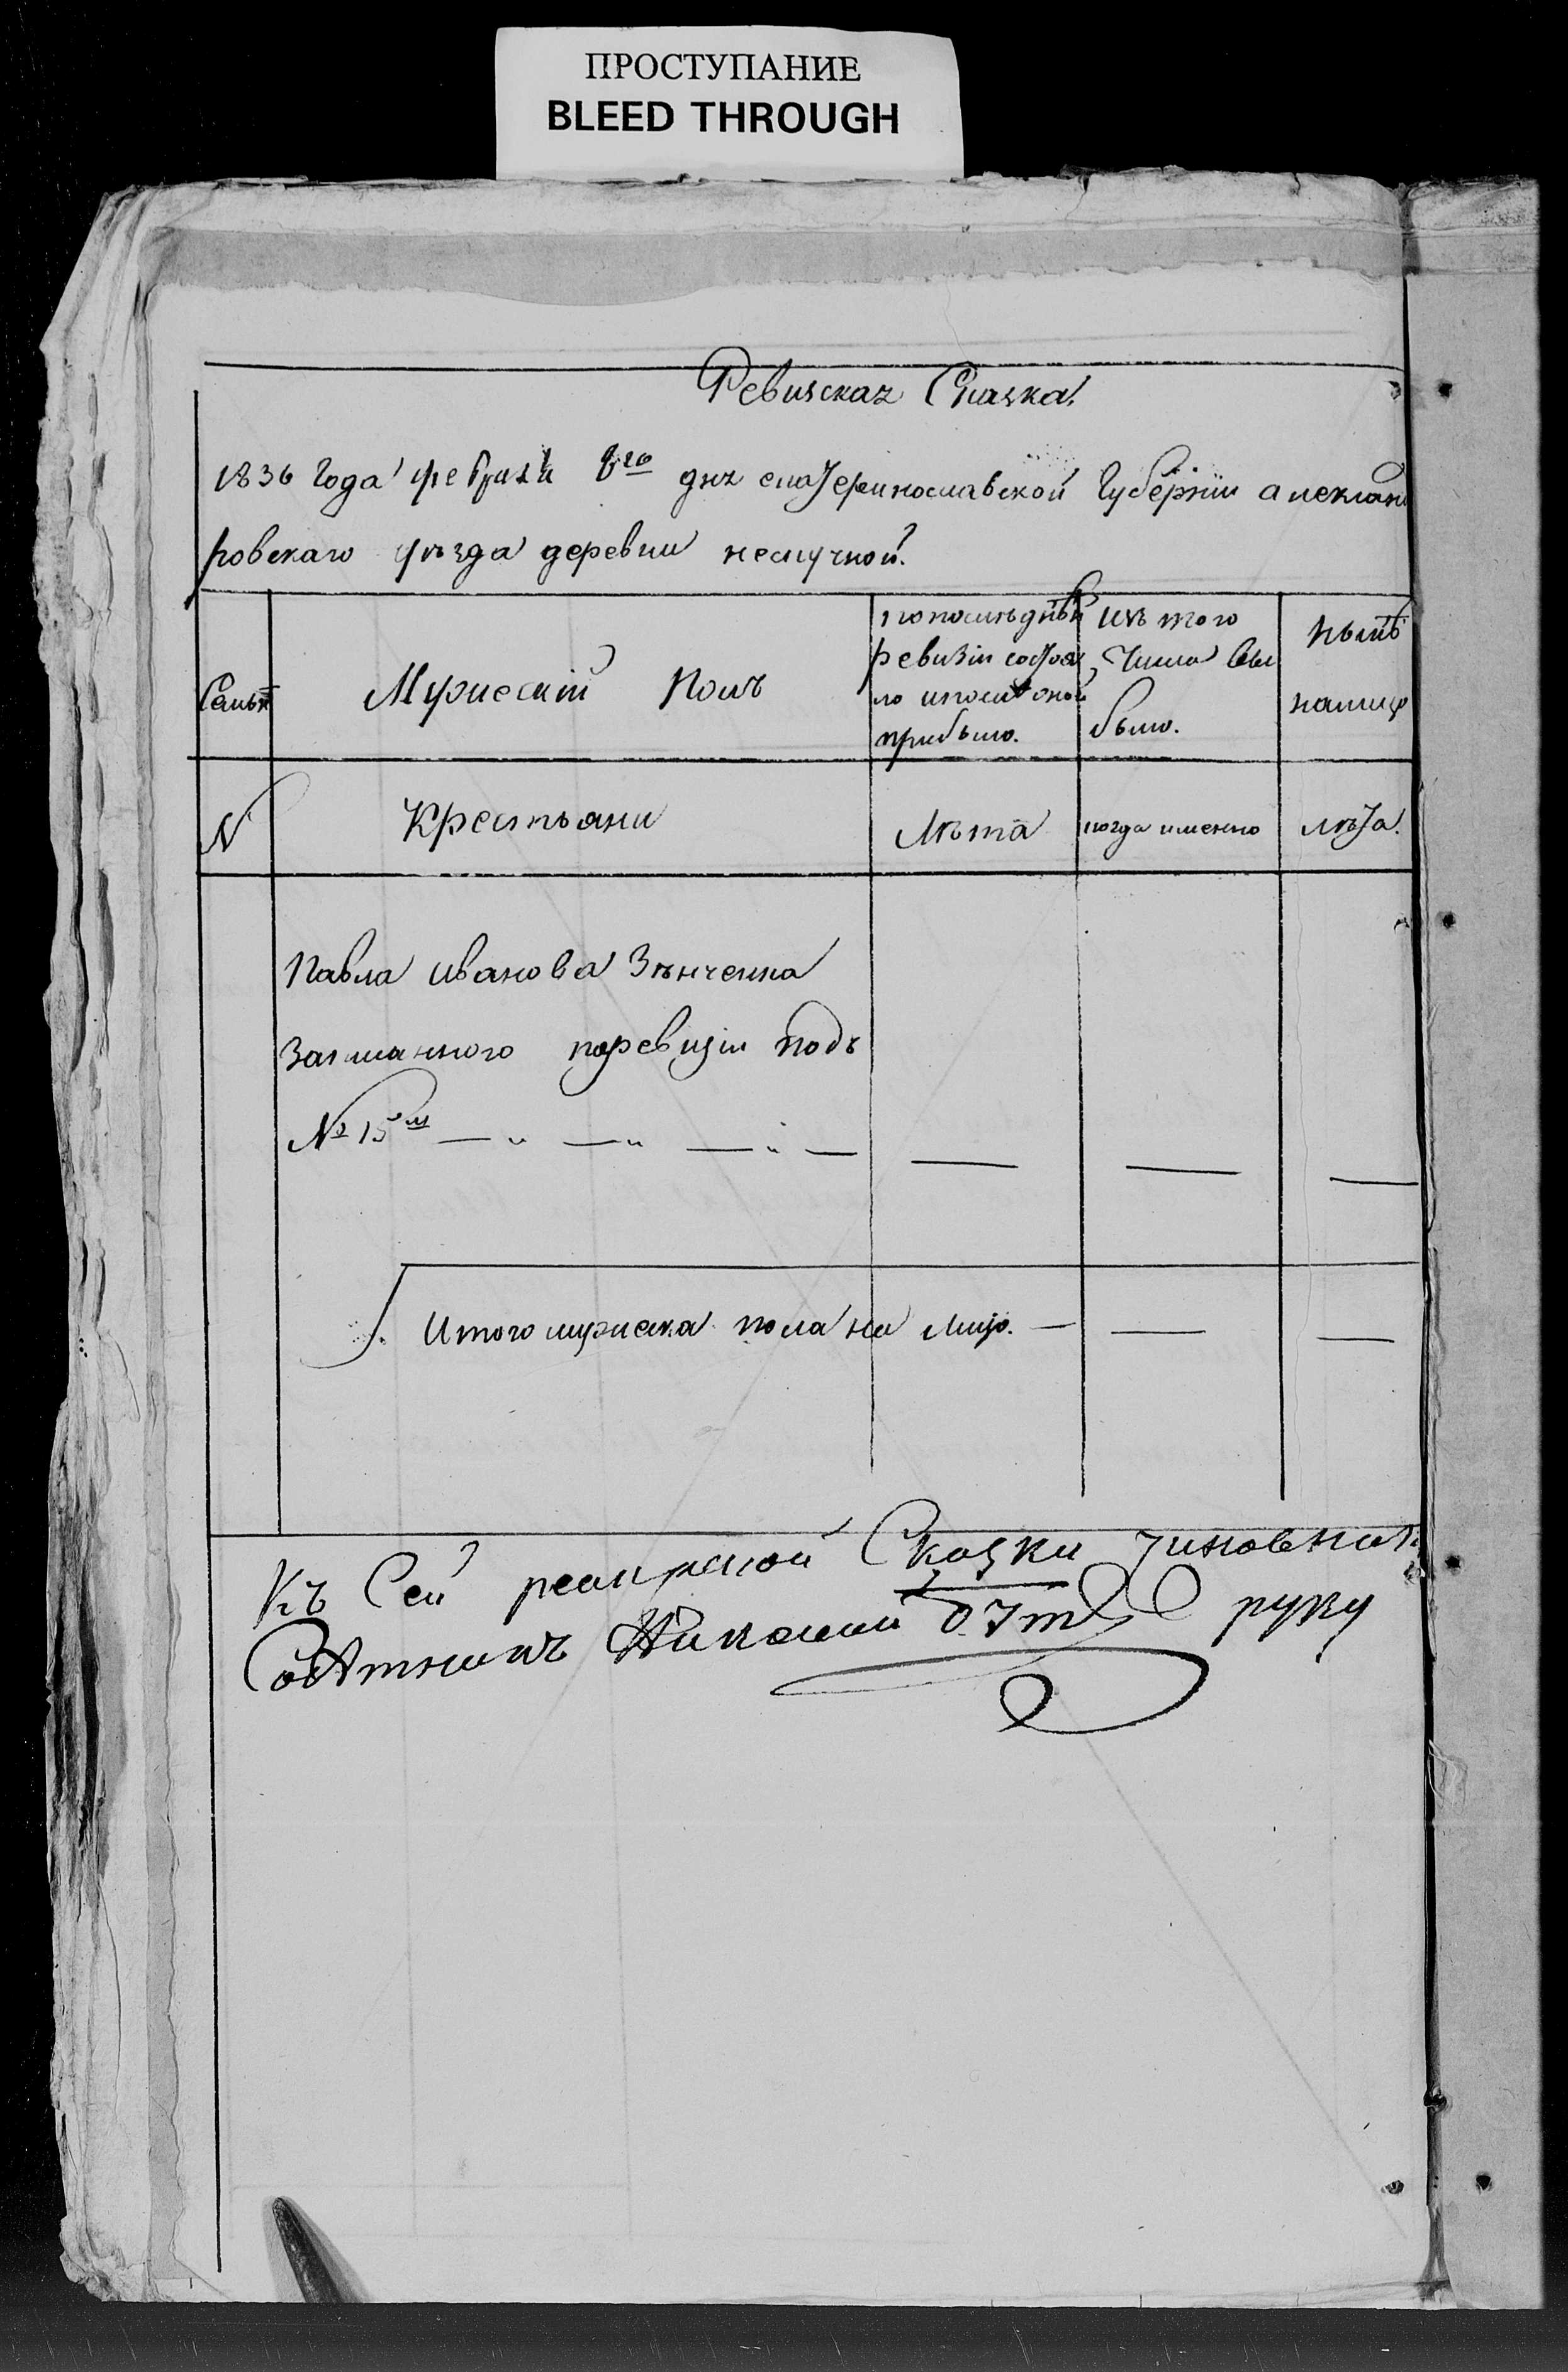 ПРОСТУПАНИЕ
BLEED THROUGH
Ревизская Сказка
1836 года февраля 8го дня екатеринославской губернiи александ
ровскаго уѣзда деревни нескучной.
Семьи
Мужескiй полъ
по последнѣй
ревизiи состоя
ло и после оной
прибыло.
изъ того
числа вы
было.
нынѣ
налицо
N
Крестьяни
Лѣта
когда именно
лѣта.
Павла иванова Зѣнченка
записанного по ревизiи подъ
№ 15м — " — " — " —
Итого мужеска пола на лицо. —
Къ Сей Сказки
руку